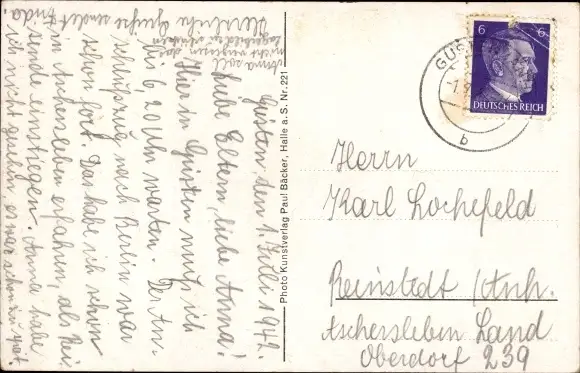 Güsten den 1. Juli 1942.
Liebe Eltern, liebe Anna!
Hier in Güsten muß ich
bis 6 20 Uhr warten. Der An-
schlußzug nach Berlin war
schon fort. Das habe ich schon
in Aschersleben erfahren, als Rei-
sende einstiegen. Anna habe
ich nicht gesehen, es war schon zu spät.
Anna soll
nicht vergessen das
zu schicken
Herzliche Grüße sendet
Photo Kunstverlag Paul Bäcker, Halle a. S. Nr. 221
6 6
DEUTSCHES REICH
GÜS
b
Herrn
Karl Lochefeld
Reinstedt /Anh.
Aschersleben Land
Oberdorf 239